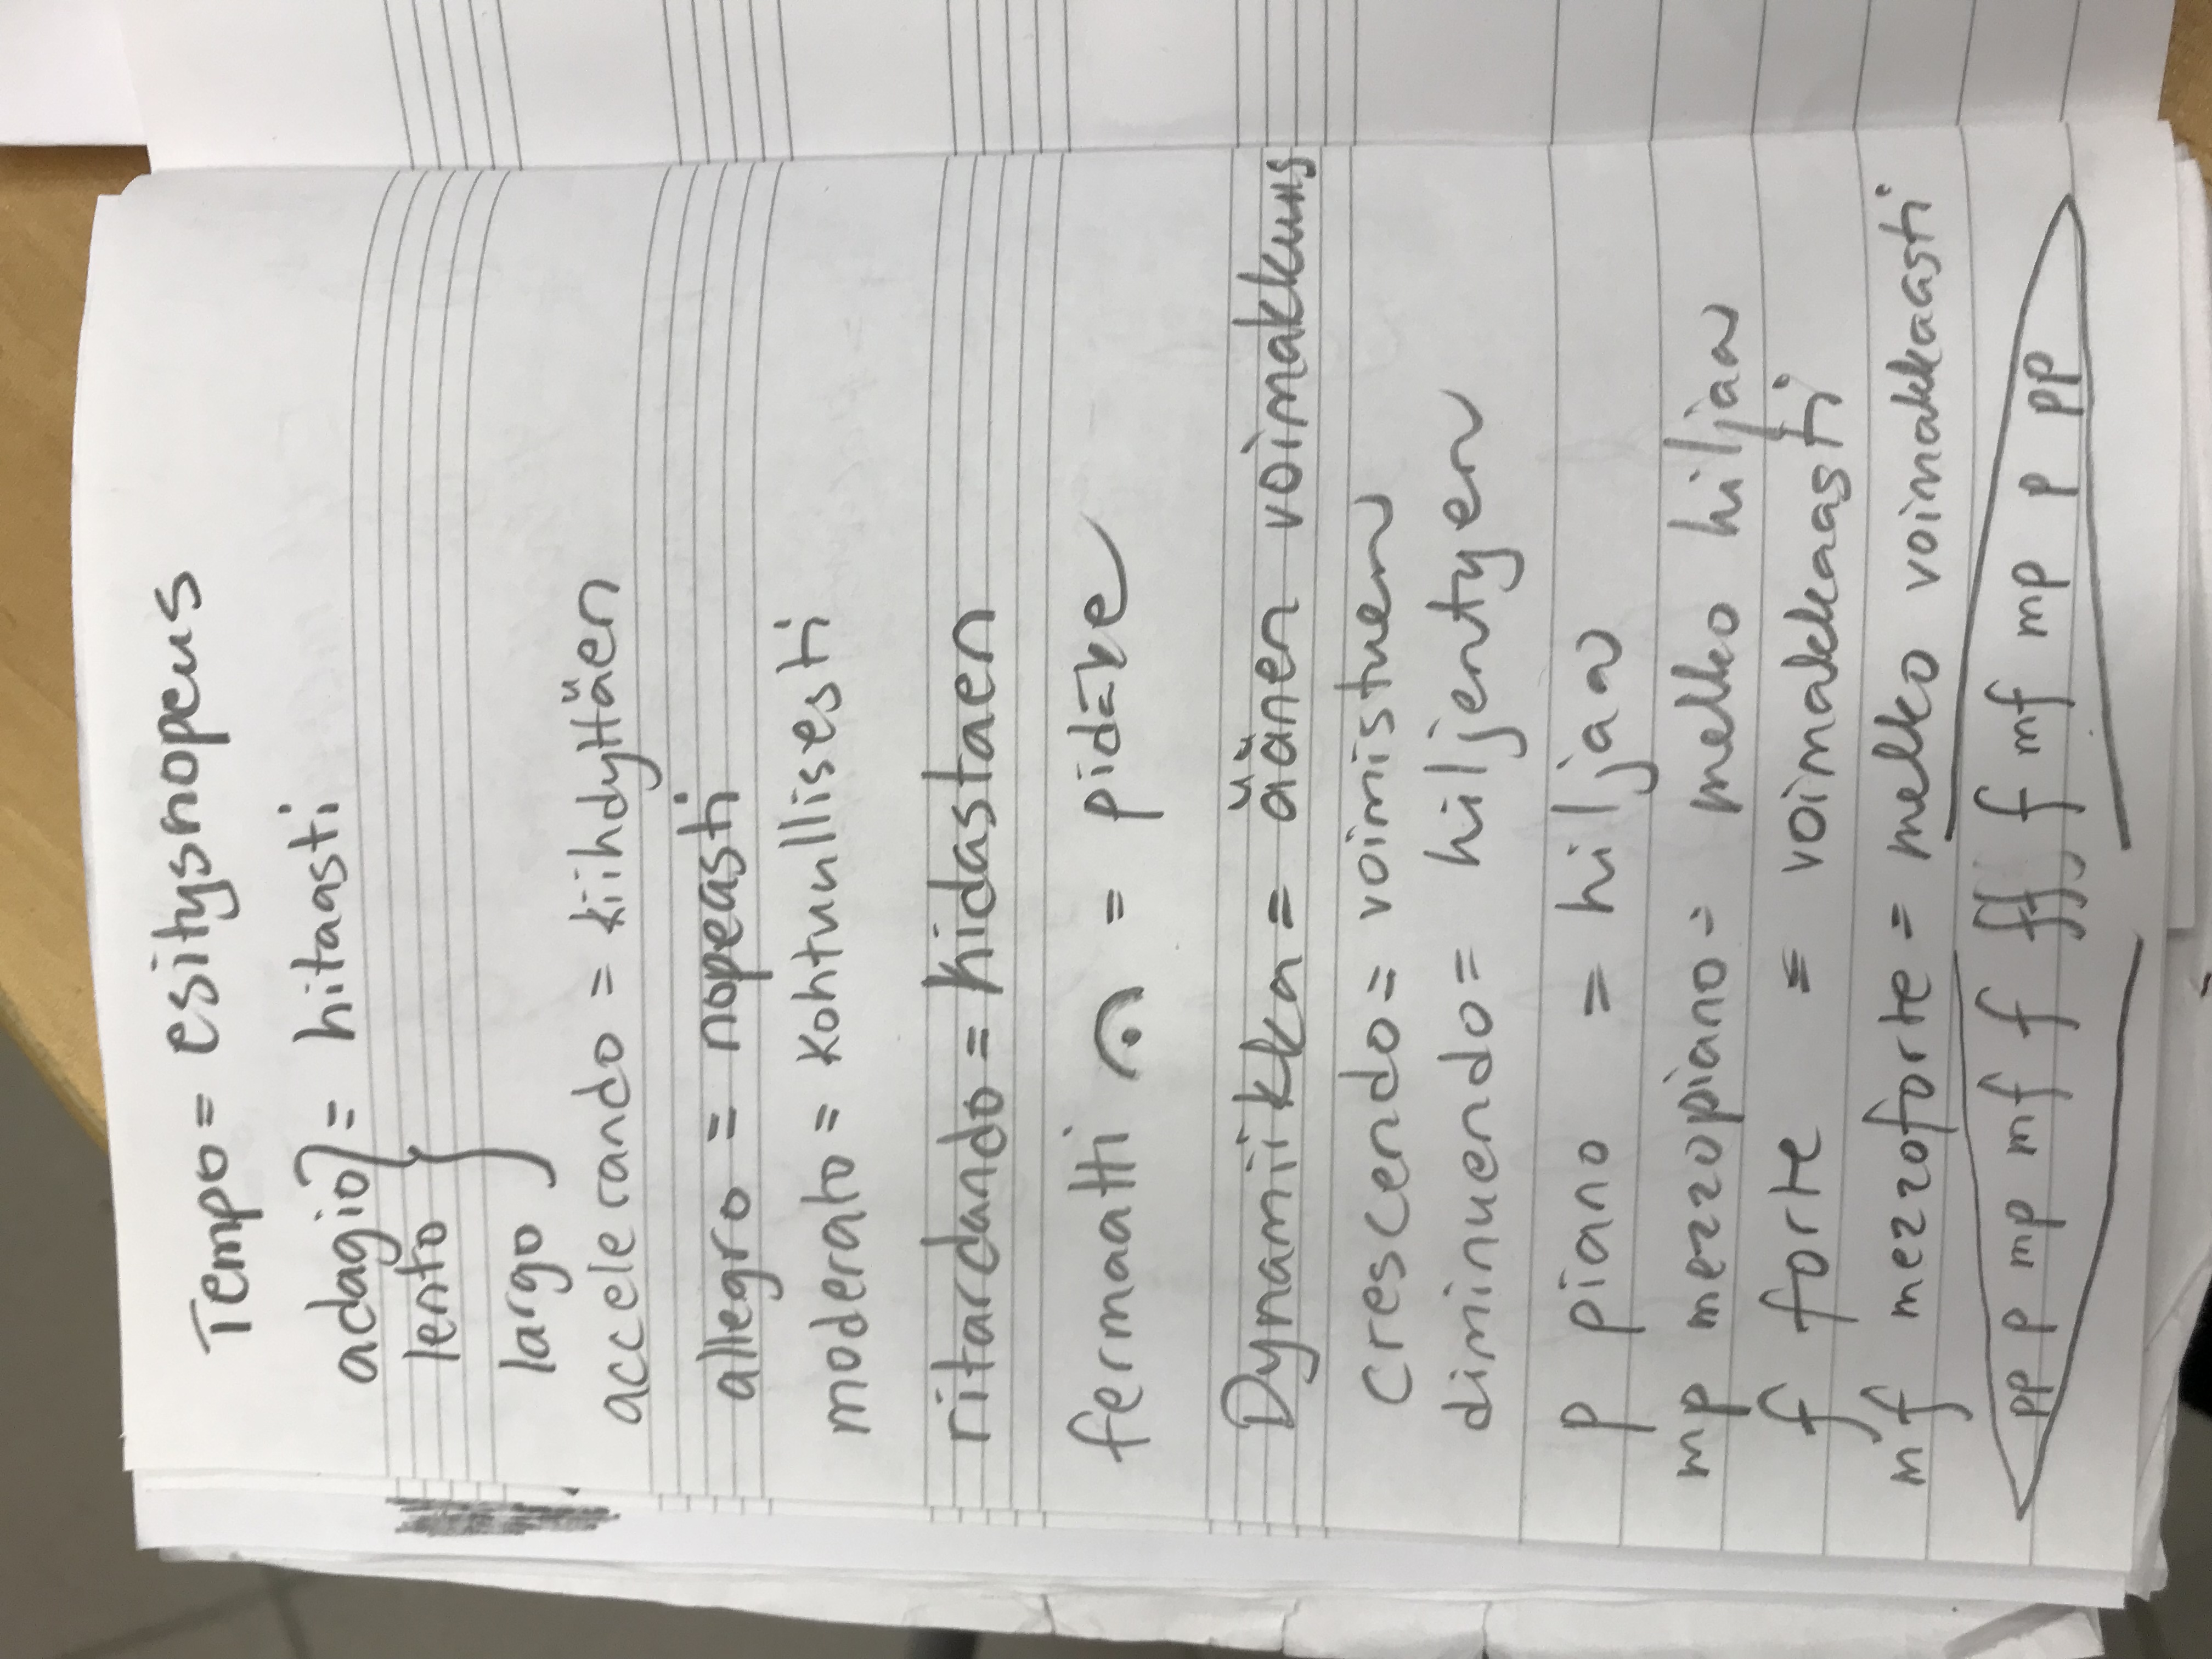 Tempo = esitysnopeus
adagio } = hitaasti
lento
largo
accelerando = kiihdyttäen
allegro = nopeasti
moderato = kohtuullisesti
ritardando = hidastaen
fermaatti 𝄐 = pidäke
Dynamiikka = äänen voimakkuus
crescendo = voimistuen
diminuendo = hiljentyen
p piano = hiljaa
mp mezzopiano = melko hiljaa
f forte = voimakkaasti
mf mezzoforte = melko voimakkaasti
pp p mp mf f ff f mf mp p pp